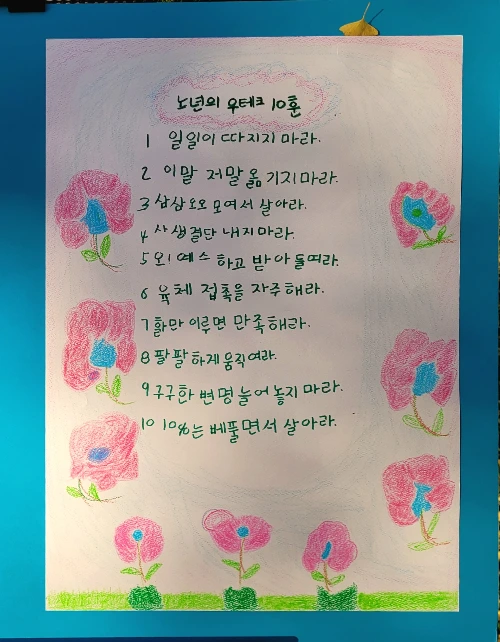 노년의 우테크 10훈
1 일일이 따지지 마라.
2 이말 저말 옮기지마라.
3 삼삼오오 모여서 살아라.
4 사생결단 내지마라.
5 오! 예스 하고 받아 들여라.
6 육체 접촉을 자주해라.
7 할만 이루면 만족해라.
8 팔팔하게 움직여라.
9 구구한 변명 늘어 놓지 마라.
10 10%는 베풀면서 살아라.